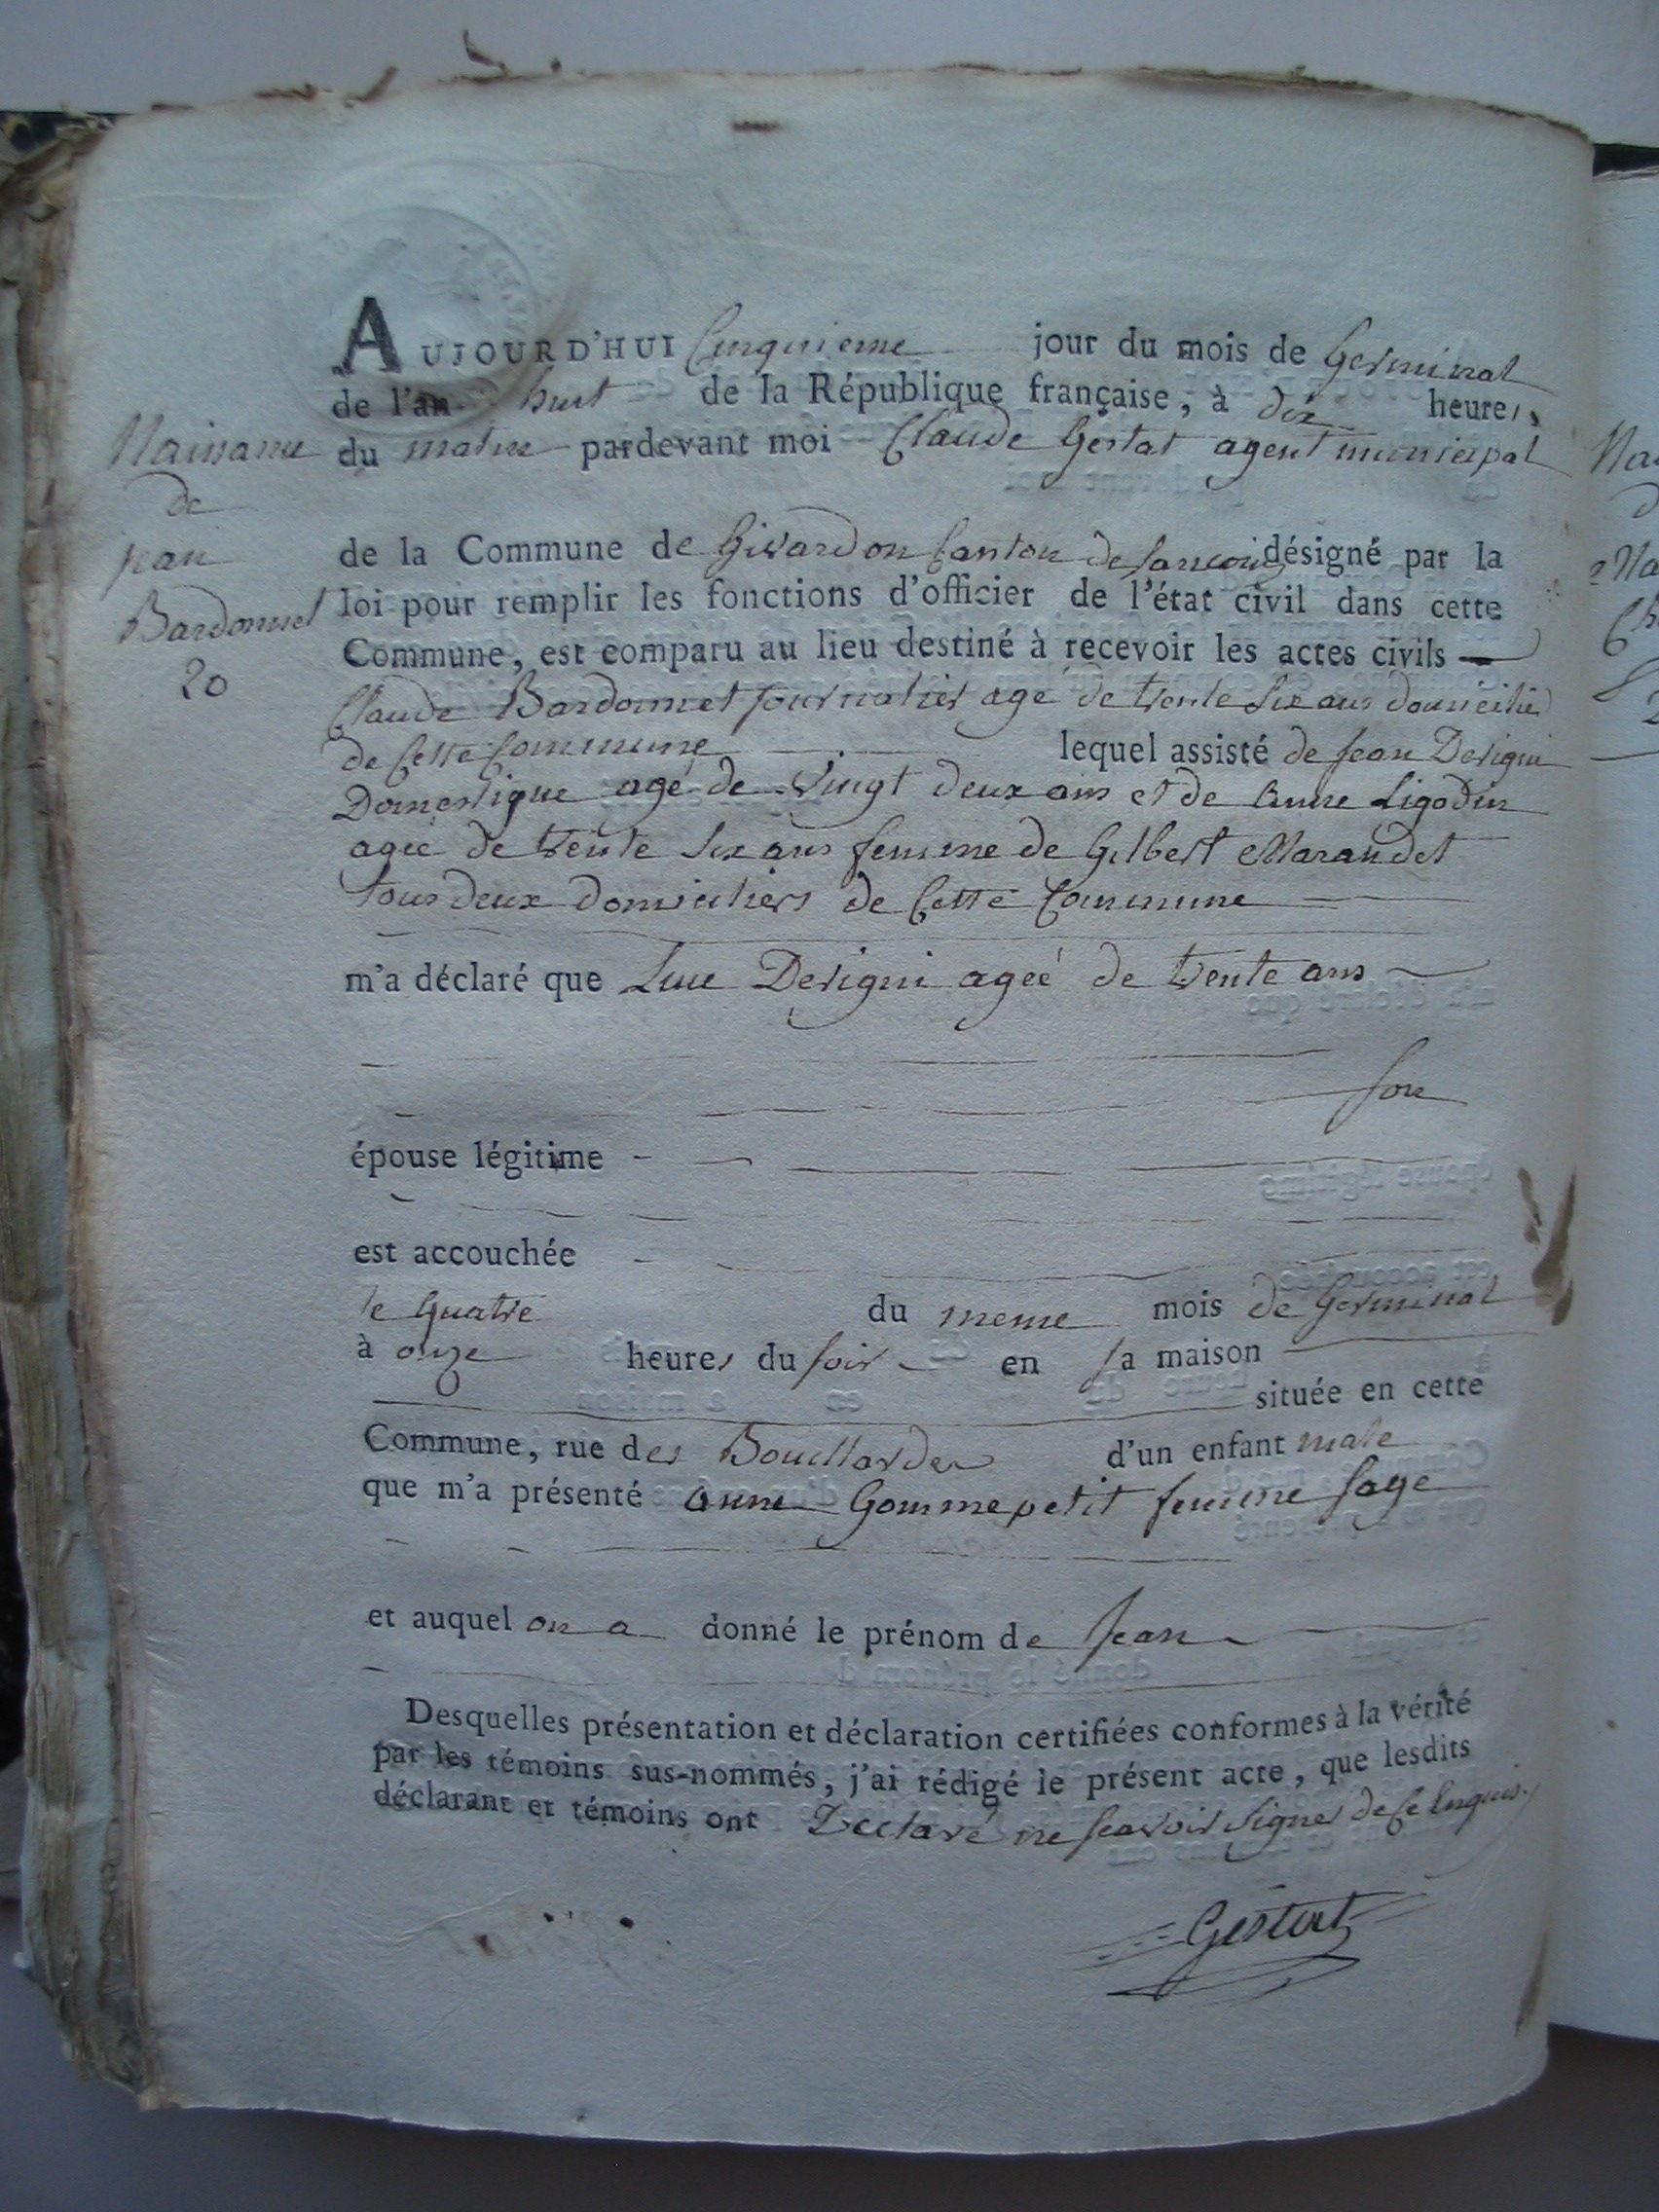 Naissance
de
jean
Bardonnet
20
AUJOURD'HUI Cinquieme jour du mois de Germinal
de l'an huit de la République française, à dix heures
du matin pardevant moi Claude Gestat agent municipal
de la Commune de Givardon Canton de Sancoins désigné par la
loi pour remplir les fonctions d'officier de l'état civil dans cette
Commune, est comparu au lieu destiné à recevoir les actes civils
Claude Bardonnet journalier agé de trente six ans domicilié
de Cette Commune lequel assisté de Jean Derigni
Domestique agé de Vingt deux ans et de Anne Ligodin
agée de trente six ans femme de Gilbert Marandet
tous deux domiciliers de Cette Commune
m'a déclaré que Luce Derigni ageé de trente ans
son
épouse légitime
est accouchée
le Quatre du meme mois de Germinal
à onze heures du soir en sa maison
située en cette
Commune, rue des Bouillardes d'un enfant male
que m'a présenté anne Gommepetit femme sage
et auquel on a donné le prénom de Jean
Desquelles présentation et déclaration certifiées conformes à la vérité
par les témoins sus-nommés, j'ai rédigé le présent acte, que lesdits
déclarant et témoins ont Declaré ne scavoir signer de Ce Enquis
Gestat